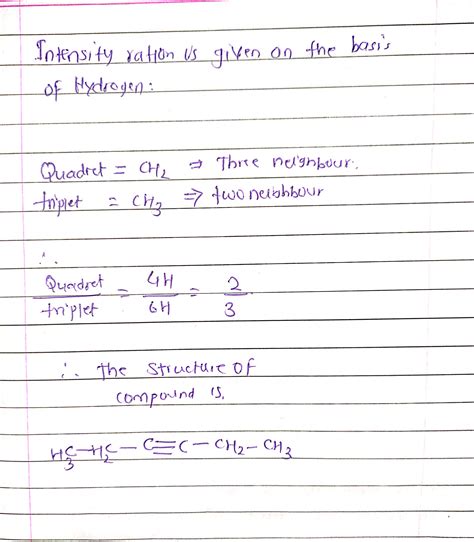 Intensity ration is given on the basis
of Hydrogen:
Quadret = CH₂ ⇒ Three neighbour.
triplet = CH₃ ⇒ two neibhbour
∴
Quadret/triplet = 4H/6H = 2/3
∴ The structure of
compound is,
H₃C-H₂C-C≡C-CH₂-CH₃